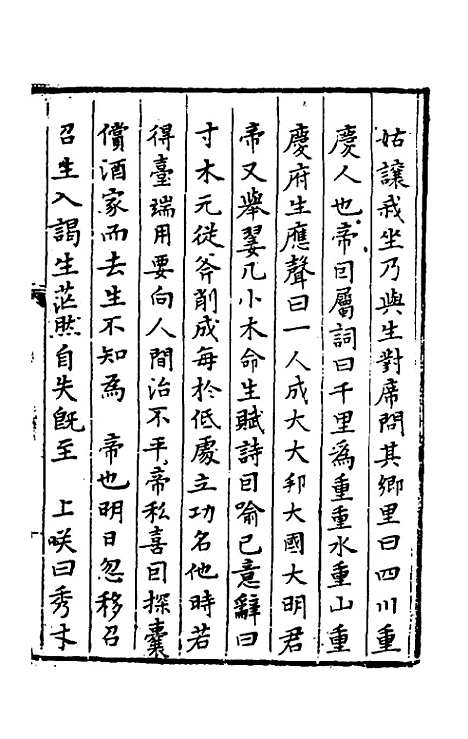 姑讓我坐乃與生對席問其鄉里曰四川重
慶人也帝因屬詞曰千里為重重水重山重
慶府生應聲曰一人成大大邦大國大明君
帝又舉翣几小木命生賦詩因喻己意辭曰
寸木元從斧削成每於低處立功名他時若
得臺端用要向人間治不平帝私喜因探囊
償酒家而去生不知為 帝也明日忽移召
召生入謁生茫然自失旣至 上咲曰秀才